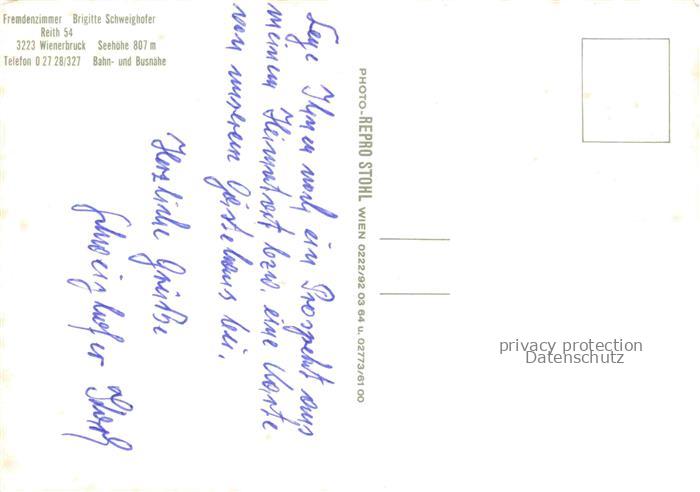 Fremdenzimmer Brigitte Schweighofer
Reith 54
3223 Wienerbruck Seehöhe 807 m
Telefon 0 27 28/327 Bahn- und Busnähe
Lege Ihnen noch ein Prospekt aus
meinem Heimatort bzw eine Karte
von unserem Gästehaus bei.
Herzliche Grüße
Schweighofer
PHOTO-REPRO STOHL WIEN 0222/92 03 64 u. 02773/61 00
privacy protection
Datenschutz